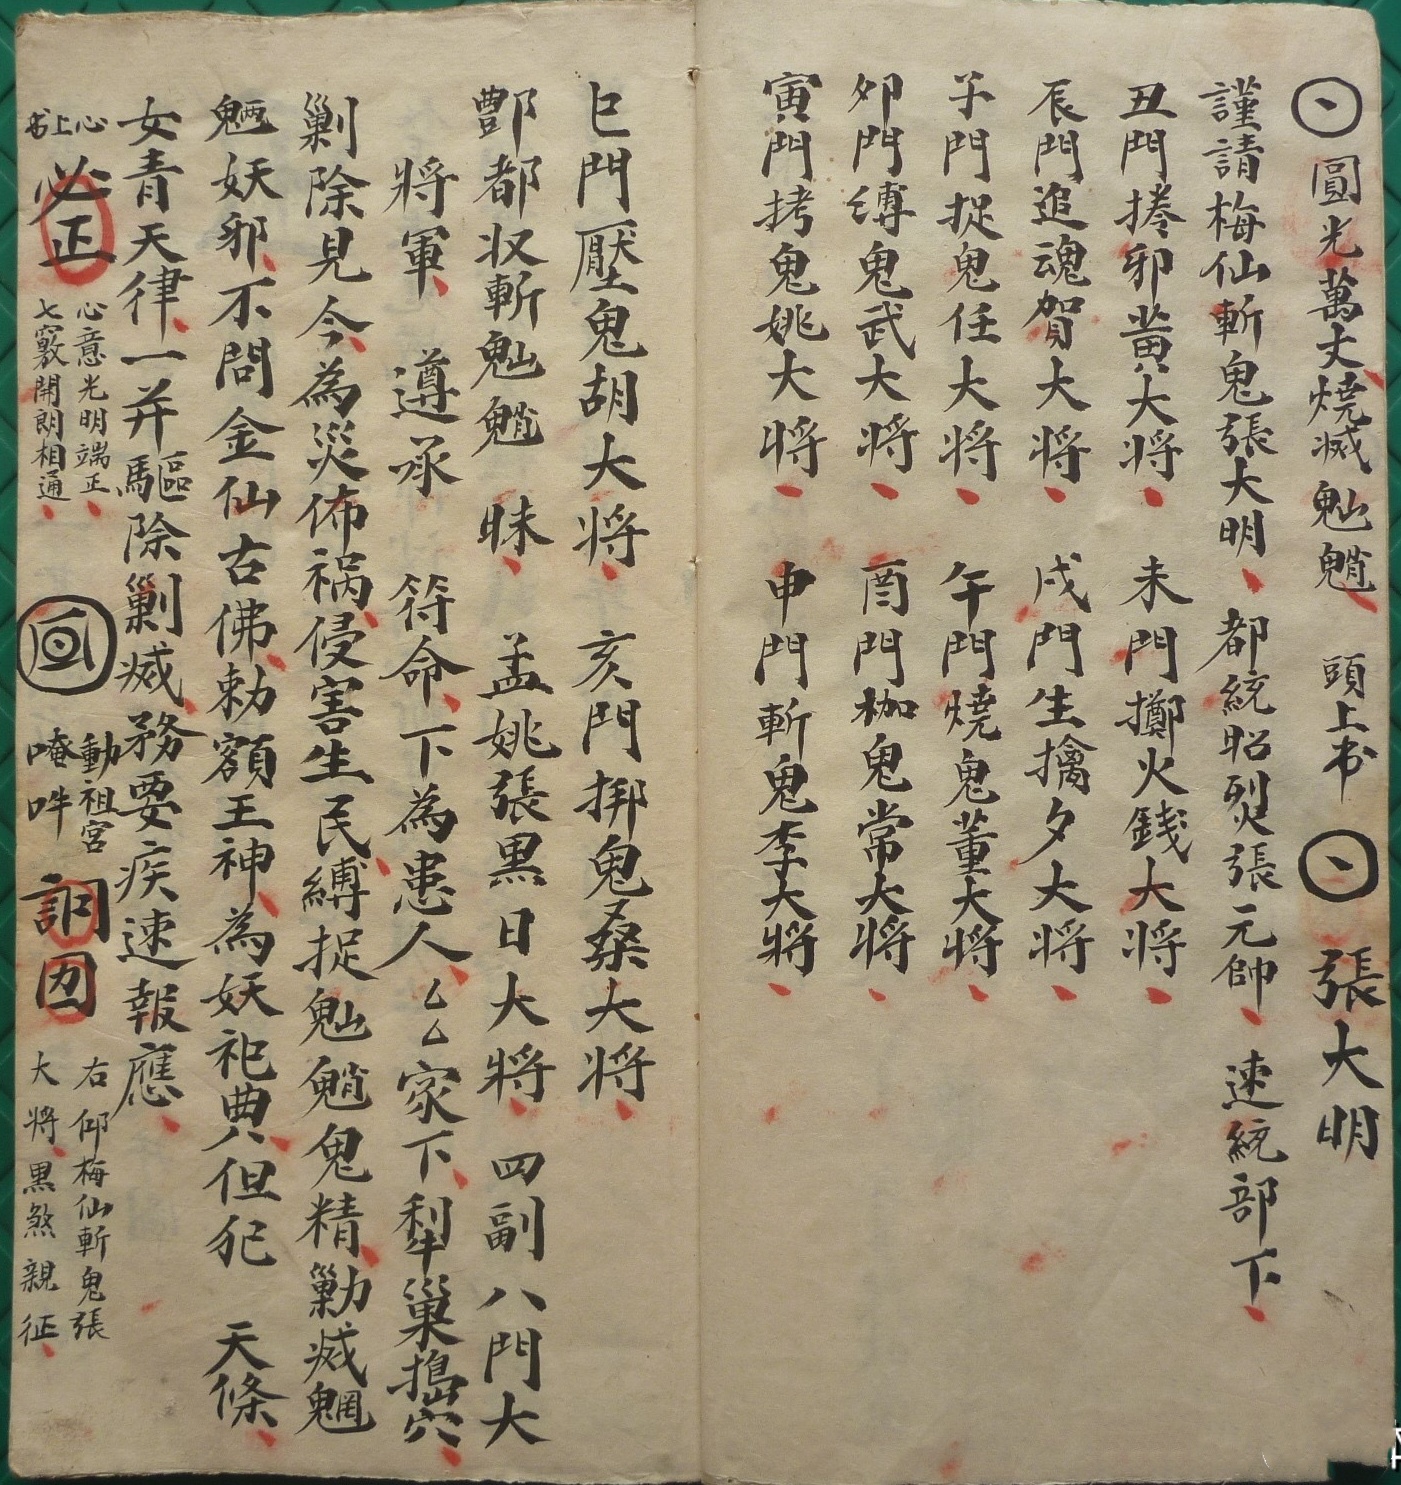 圓光萬丈燒滅魈魈 頭上书 張大明
謹請梅仙斬鬼張大明 都統昭烈張元帥 速統部下
丑門捲邪黃大将 未門擲火錢大将
辰門追魂賀大将 戌門生擒夕大将
子門捉鬼任大将 午門燒鬼董大将
夘門縛鬼武大将 酉門枷鬼常大将
寅門拷鬼姚大将 申門斬鬼李大将
巳門壓鬼胡大将 亥門挷鬼桑大将
酆都収斬 昧 孟姚張黑日大将 四副八門大
将軍 遵承 符命下為患人厶厶家下犁巢搗穴
剿除見今為災佈禍侵害生民縛捉 鬼精勦滅魍
魎妖邪不問金仙古佛勅額王神為妖祀典但犯 天條
女青天律一并驅除剿滅務要疾速報應
心上书 必正 心意光明端正 七竅開朗相通 動祖宮 唵吽 右仰梅仙斬鬼張大将黑煞親征